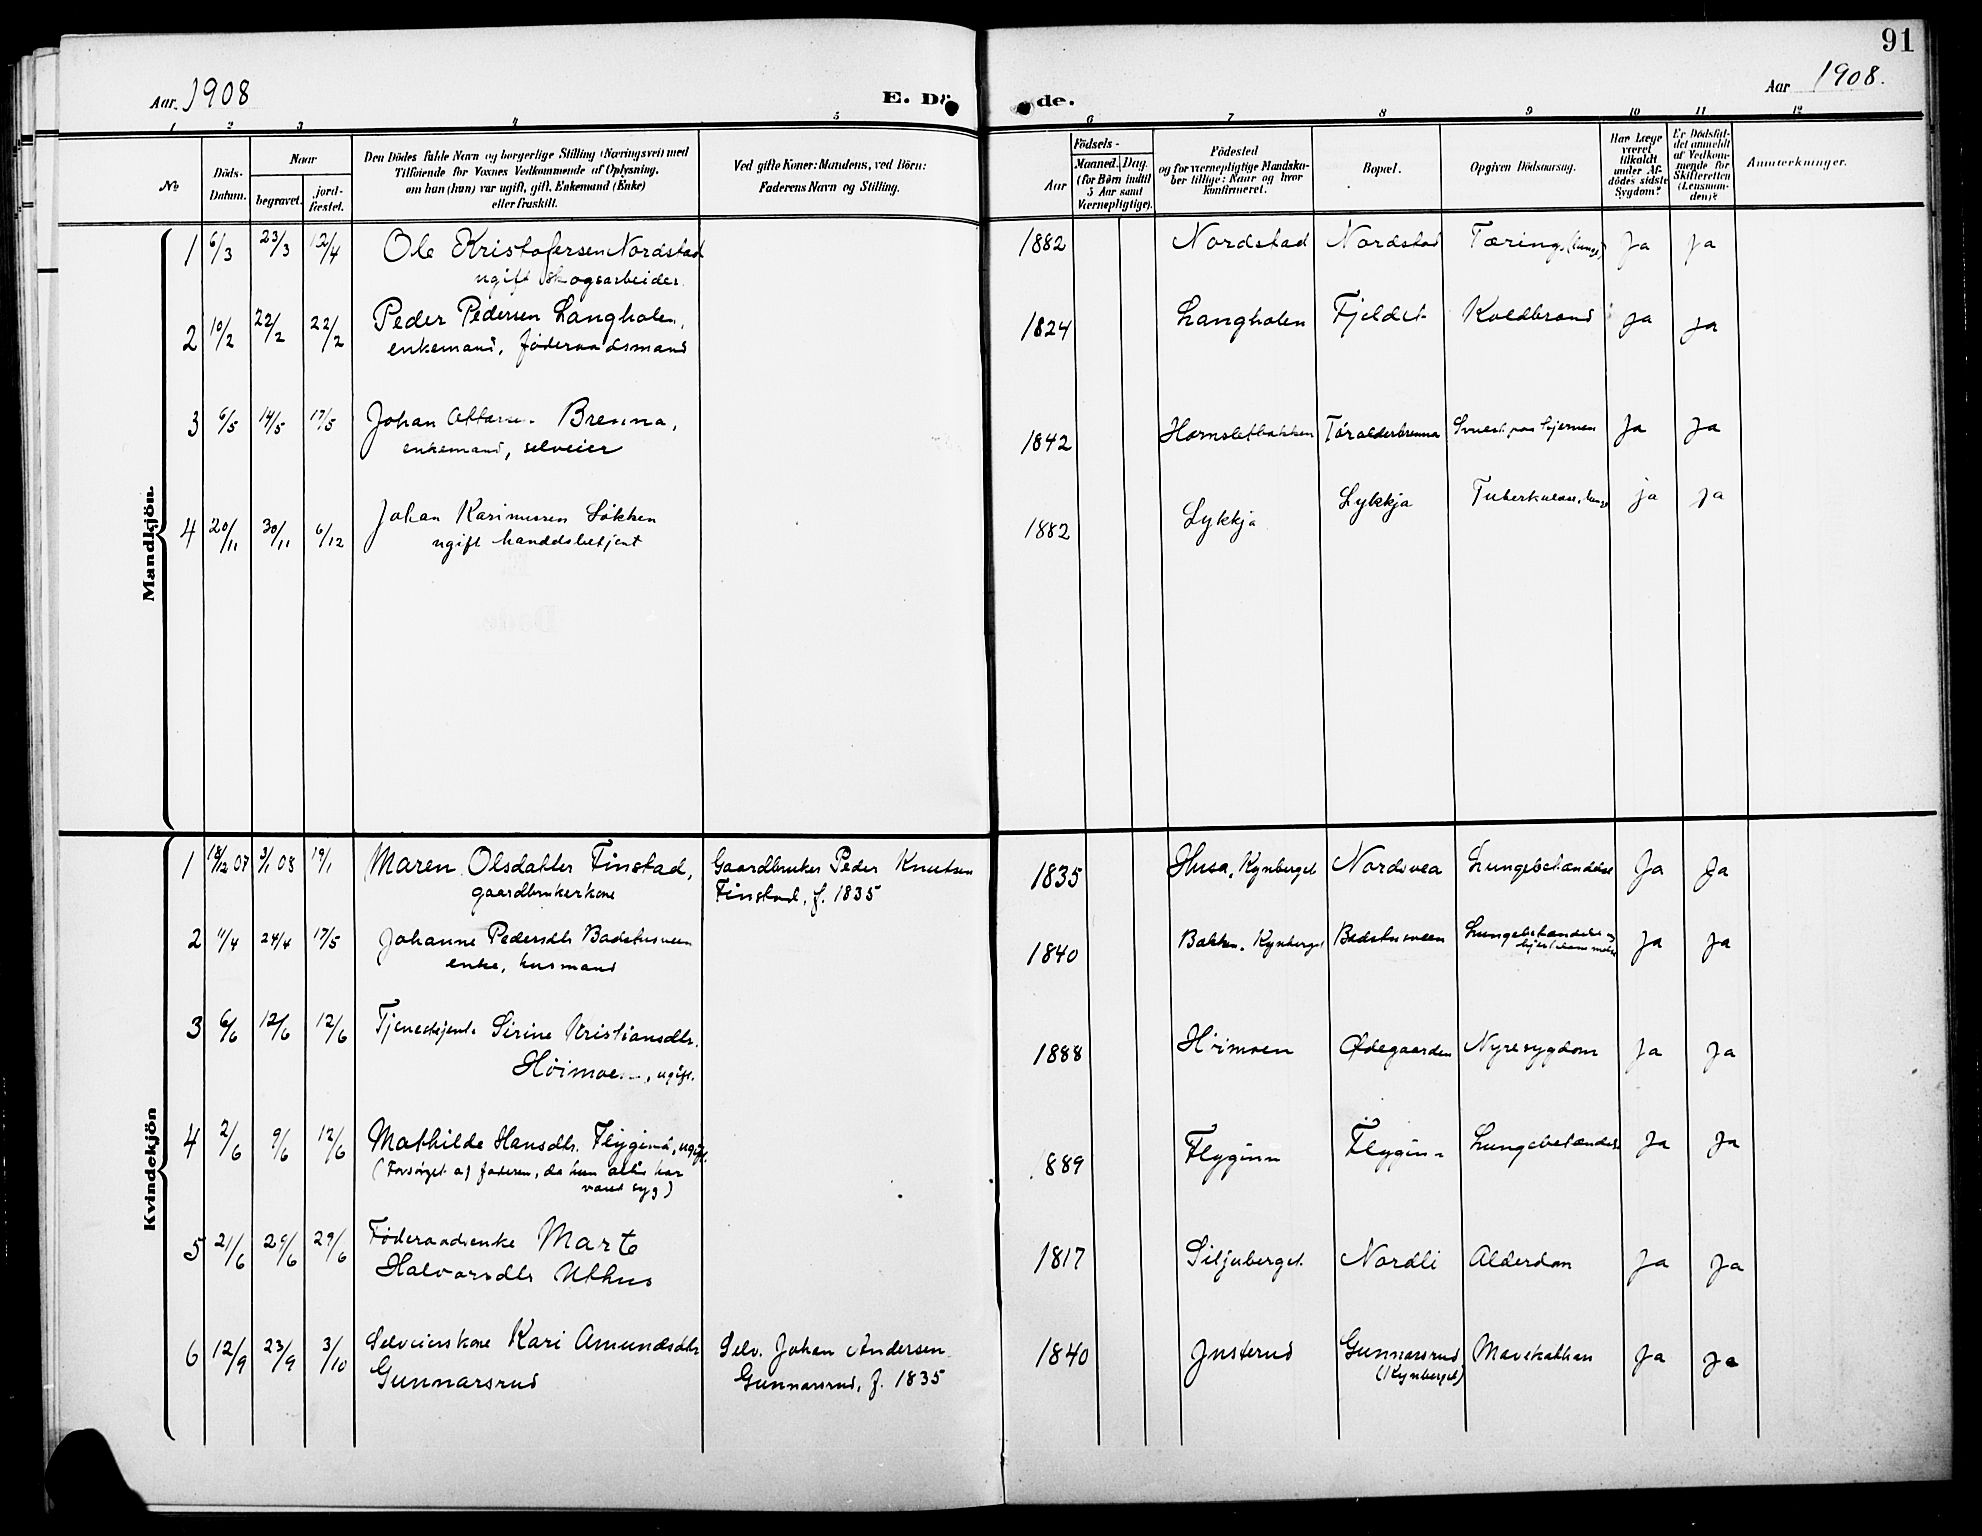 91
Aar 1908
E. Dö
de.
Aar 1908.
1 2 3 4 5 6 7 8 9 10 11 12
No
Döds-Datum.
Naar
begravet.
jord-fæstet.
Den Dödes fulde Navn og borgerlige Stilling (Næringsvei) med
Tilföiende for Voxnes Vedkommende af Oplysning,
om han (hun) var ugift, gift, Enkemand (Enke)
eller fraskilt.
Ved gifte Koner: Mandens, ved Börn:
Faderens Navn og Stilling.
Födsels-
Aar
Maaned. Dag.
(for Börn indtil
5 Aar samt
Værnepligtige).
Födested
og for værnepligtige Mandska-
ber tillige: Naar og hvor
konfirmeret.
Bopæl.
Opgiven Dödsaarsag.
Har Læge
været
tilkaldt
under Af-
dödes sidste
Sygdom?
Er Dödsfal-
det anmeldt
af Vedkom-
mende for
Skifteretten
(Lensman-
den)?
Anmerkninger.
Mandkjön.
1 6/3 23/3 12/4 Ole Kristofersen Nordstad 1882 Nordstad Nordstad Tæring, (lunge) Ja Ja
ugift skogsarbeider.
2 10/2 22/2 22/2 Peder Pedersen Langholen, 1824 Langholen Fjeldet Koldbrand ja ja
enkemand, føderaadsmand
3 6/5 14/5 17/5 Johan Brenna, 1842 Hornsletbakken Toralderbrenna Ja Ja
enkemand, selveier
4 20/11 30/11 6/12 Johan Karinussen Løkken 1882 Lykkja Lykkja Tuberkulose, lunge ja ja
ugift handelsbetjent
Kvindekjön
1 18/12 07 3/1 08 19/1 Maren Olsdatter Finstad, Gaardbruker Peder Knutsen 1835 Husa, Kynberget Lungebetændelse Ja Ja
gaardbrukerkone Finstad, f. 1835
2 11/4 24/4 17/5 Johanne Pedersdtr Badstusveen 1840 Bakken, Kynberget Badstusveen Lungebetændelse og Ja Ja
enke, husmand
3 6/6 12/6 12/6 Tjenestejente Sirine Kristiansdtr. 1888 Høimoen Ødegaarden Nyresygdom Ja Ja
Höimoen, ugift.
4 2/6 9/6 12/6 Mathilde Hansdtr. Flyginn, ugift. 889 Flyginn Flyginn Lungebetændelse Ja Ja
(Forsørget af faderen, da hun altid har
været syg)
5 21/6 29/6 29/6 Føderaadsenke Marte 1817 Siljuberget Nordli Alderdom Ja Ja
Halvorsdtr Uthus
6 12/9 23/9 3/10 Selveierskone Kari Amundsdtr Selv. Johan Andersen 1840 Insterud Gunnarsrud Mavekatthar Ja Ja
Gunnarsrud Gunnarsrud, f. 1835 (Kynberget)